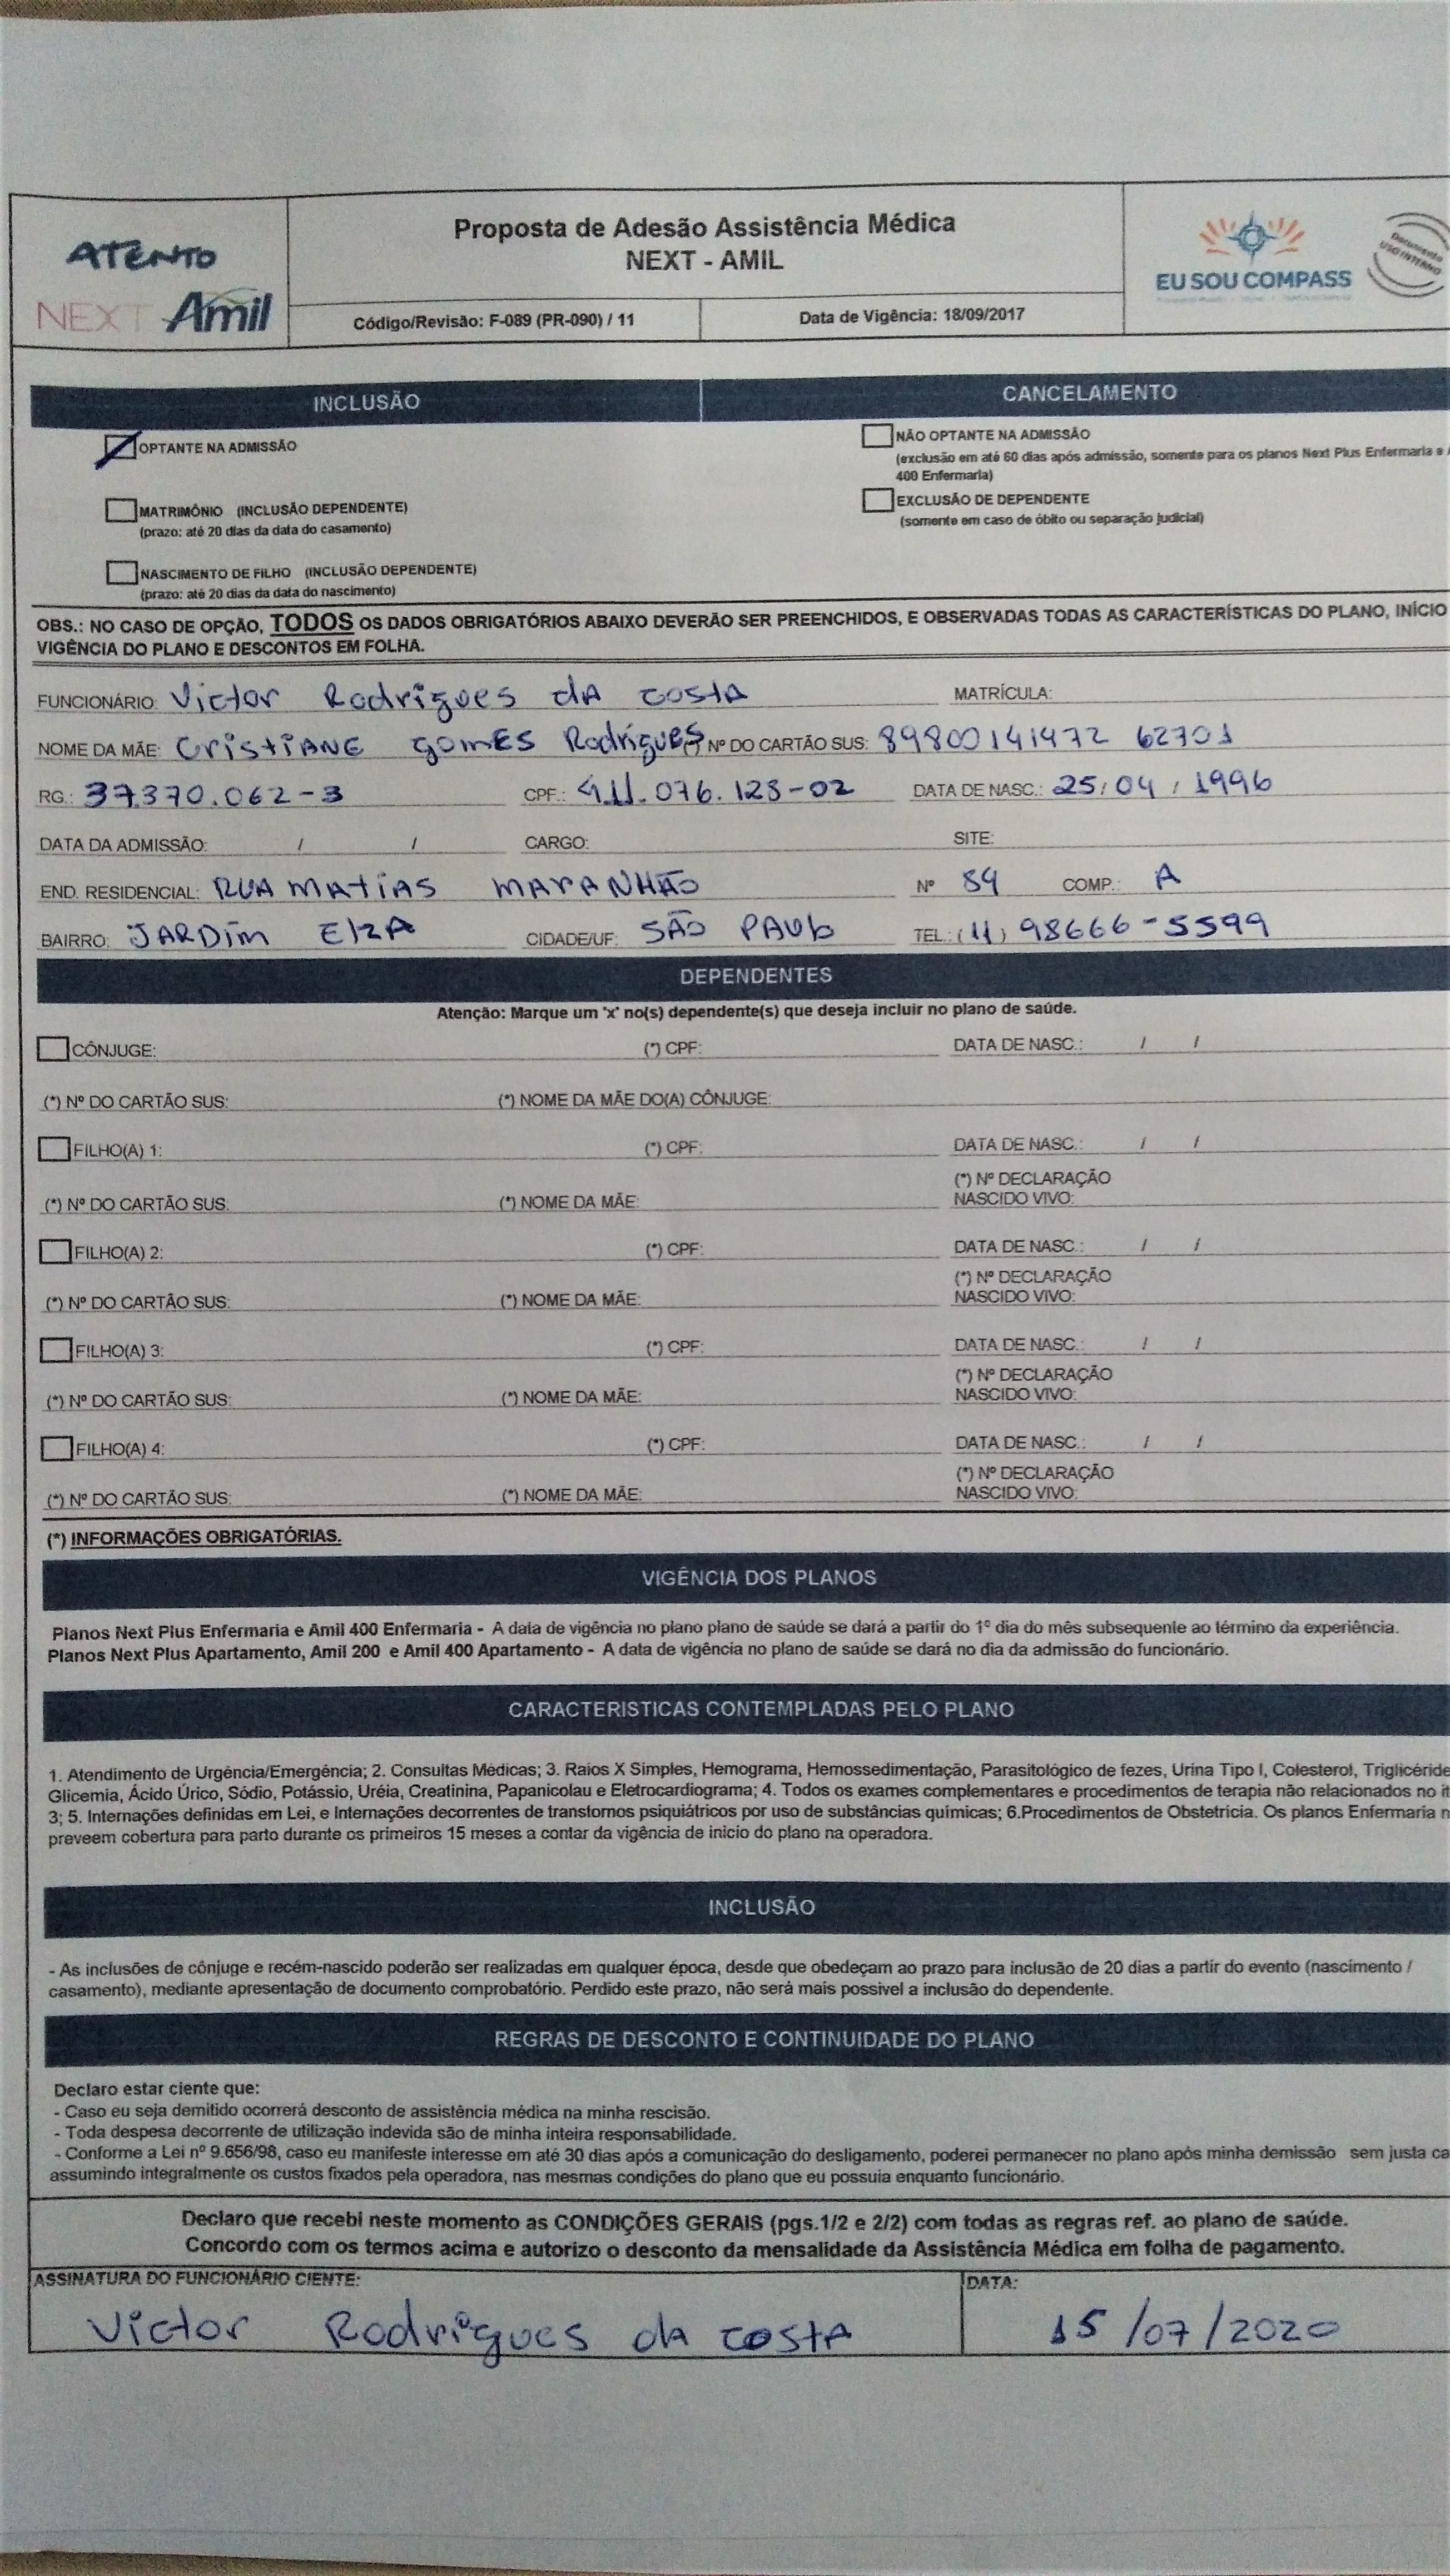 ATENTO
NEXT Amil
Proposta de Adesão Assistência Médica
NEXT - AMIL
Código/Revisão: F-089 (PR-090) / 11
Data de Vigência: 18/09/2017
EU SOU COMPASS
Documento
USO INTERNO
INCLUSÃO
CANCELAMENTO
OPTANTE NA ADMISSÃO
NÃO OPTANTE NA ADMISSÃO
(exclusão em até 60 dias após admissão, somente para os planos Next Plus Enfermaria e
400 Enfermaria)
MATRIMÔNIO (INCLUSÃO DEPENDENTE)
(prazo: até 20 dias da data do casamento)
EXCLUSÃO DE DEPENDENTE
(somente em caso de óbito ou separação judicial)
NASCIMENTO DE FILHO (INCLUSÃO DEPENDENTE)
(prazo: até 20 dias da data do nascimento)
OBS.: NO CASO DE OPÇÃO, TODOS OS DADOS OBRIGATÓRIOS ABAIXO DEVERÃO SER PREENCHIDOS, E OBSERVADAS TODAS AS CARACTERÍSTICAS DO PLANO, INÍCIO
VIGÊNCIA DO PLANO E DESCONTOS EM FOLHA.
FUNCIONÁRIO: Victor Rodrigues dA costA MATRÍCULA:
NOME DA MÃE: CRistiANE gomES Rodrigues (*) Nº DO CARTÃO SUS: 89800141472 62701
RG.: 37.370.062-3 CPF.: 411.076.123-02 DATA DE NASC.: 25/04/1996
DATA DA ADMISSÃO: / / CARGO: SITE:
END. RESIDENCIAL: RUA mAtiAS MARANHÃO Nº 84 COMP.: A
BAIRRO: JARDim ElzA CIDADE/UF: SÃO PAUlo TEL.: (11) 98666-5599
DEPENDENTES
Atenção: Marque um 'x' no(s) dependente(s) que deseja incluir no plano de saúde.
CÔNJUGE: (*) CPF: DATA DE NASC.: / /
(*) Nº DO CARTÃO SUS: (*) NOME DA MÃE DO(A) CÔNJUGE:
FILHO(A) 1: (*) CPF: DATA DE NASC.: / /
(*) Nº DO CARTÃO SUS: (*) NOME DA MÃE: (*) Nº DECLARAÇÃO
NASCIDO VIVO:
FILHO(A) 2: (*) CPF: DATA DE NASC.: / /
(*) Nº DO CARTÃO SUS: (*) NOME DA MÃE: (*) Nº DECLARAÇÃO
NASCIDO VIVO:
FILHO(A) 3: (*) CPF: DATA DE NASC.: / /
(*) Nº DO CARTÃO SUS: (*) NOME DA MÃE: (*) Nº DECLARAÇÃO
NASCIDO VIVO:
FILHO(A) 4: (*) CPF: DATA DE NASC.: / /
(*) Nº DO CARTÃO SUS: (*) NOME DA MÃE: (*) Nº DECLARAÇÃO
NASCIDO VIVO:
(*) INFORMAÇÕES OBRIGATÓRIAS.
VIGÊNCIA DOS PLANOS
Planos Next Plus Enfermaria e Amil 400 Enfermaria - A data de vigência no plano plano de saúde se dará a partir do 1º dia do mês subsequente ao término da experiência.
Planos Next Plus Apartamento, Amil 200 e Amil 400 Apartamento - A data de vigência no plano de saúde se dará no dia da admissão do funcionário.
CARACTERISTICAS CONTEMPLADAS PELO PLANO
1. Atendimento de Urgência/Emergência; 2. Consultas Médicas; 3. Raios X Simples, Hemograma, Hemossedimentação, Parasitológico de fezes, Urina Tipo I, Colesterol, Triglicéride
Glicemia, Ácido Úrico, Sódio, Potássio, Uréia, Creatinina, Papanicolau e Eletrocardiograma; 4. Todos os exames complementares e procedimentos de terapia não relacionados no
3; 5. Internações definidas em Lei, e Internações decorrentes de transtornos psiquiátricos por uso de substâncias químicas; 6.Procedimentos de Obstetrícia. Os planos Enfermaria
preveem cobertura para parto durante os primeiros 15 meses a contar da vigência de inicio do plano na operadora.
INCLUSÃO
- As inclusões de cônjuge e recém-nascido poderão ser realizadas em qualquer época, desde que obedeçam ao prazo para inclusão de 20 dias a partir do evento (nascimento /
casamento), mediante apresentação de documento comprobatório. Perdido este prazo, não será mais possivel a inclusão do dependente.
REGRAS DE DESCONTO E CONTINUIDADE DO PLANO
Declaro estar ciente que:
- Caso eu seja demitido ocorrerá desconto de assistência médica na minha rescisão.
- Toda despesa decorrente de utilização indevida são de minha inteira responsabilidade.
- Conforme a Lei nº 9.656/98, caso eu manifeste interesse em até 30 dias após a comunicação do desligamento, poderei permanecer no plano após minha demissão sem justa ca
assumindo integralmente os custos fixados pela operadora, nas mesmas condições do plano que eu possuia enquanto funcionário.
Declaro que recebi neste momento as CONDIÇÕES GERAIS (pgs.1/2 e 2/2) com todas as regras ref. ao plano de saúde.
Concordo com os termos acima e autorizo o desconto da mensalidade da Assistência Médica em folha de pagamento.
ASSINATURA DO FUNCIONÁRIO CIENTE: DATA:
Victor Rodrigues dA costA 15/07/2020